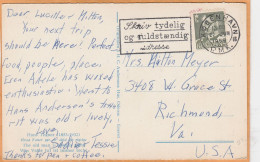 Dear Lucille & Milton,
Your next trip
should be Here! Perfect
food, people, places
Even Adele has waxed
enthusiastic! Went to
Hans Andersen's town
it was old & lovely.
Love
Jessie
Thanks for pen & coffee.
KØBENHAVN
Skriv tydelig
og fuldstændig
adresse
Mrs. Milton Meyer
3408 W. Grace St
Richmond
Va.
U.S.A.